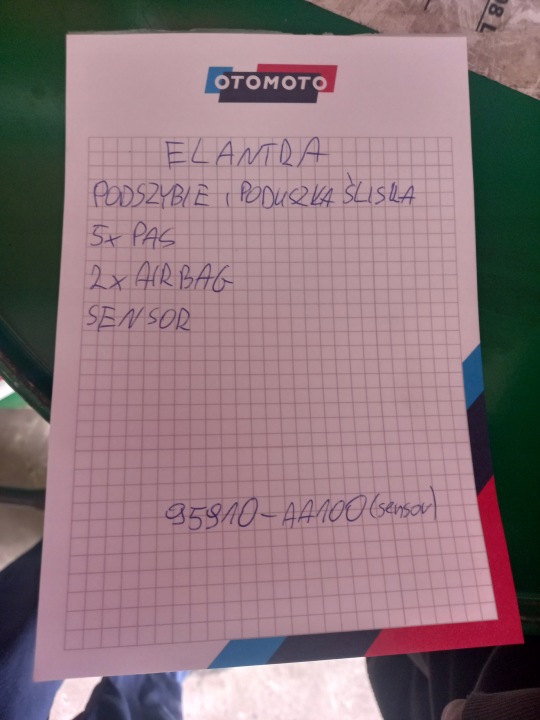 OTOMOTO
ELANTRA
PODSZYBIE, PODUSZKA ŚLISKA
5x PAS
2x AIRBAG
SENSOR
95910-AA100 (sensor)